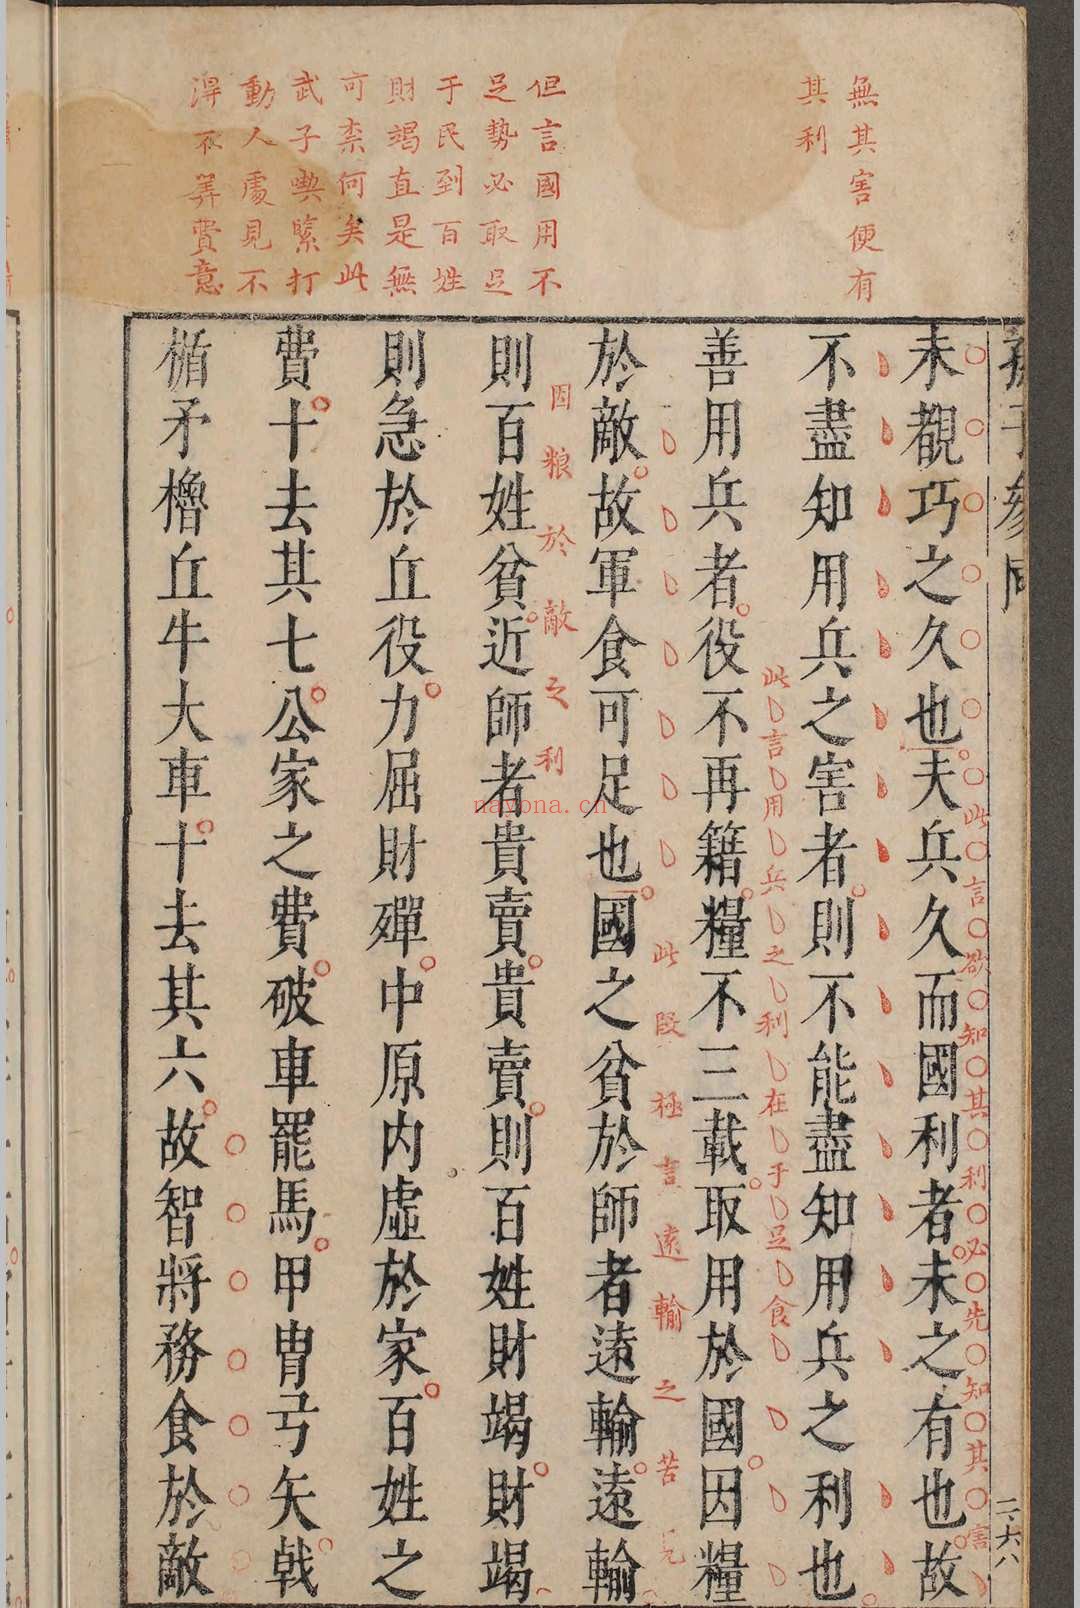 無其害便有
其利
但言國用不
足勢必取足
于民到百姓
財竭直是無
可柰何矣此
武子喫緊打
動人處見不
淂不筭費意
孫子參同
二·六八
未覩巧之久也夫兵久而國利者未之有也故
此言欲知其利必先知其害
不盡知用兵之害者則不能盡知用兵之利也
此言用兵之利在于足食
善用兵者役不再籍糧不三載取用於國因糧
此段極言遠輸之苦
於敵故軍食可足也國之貧於師者遠輸遠輸
因粮於敵之利
則百姓貧近師者貴賣貴賣則百姓財竭財竭
則急於丘役力屈財殫中原内虛於家百姓之
費十去其七公家之費破車罷馬甲冑弓矢戟
楯矛櫓丘牛大車十去其六故智將務食於敵
nayona.cn